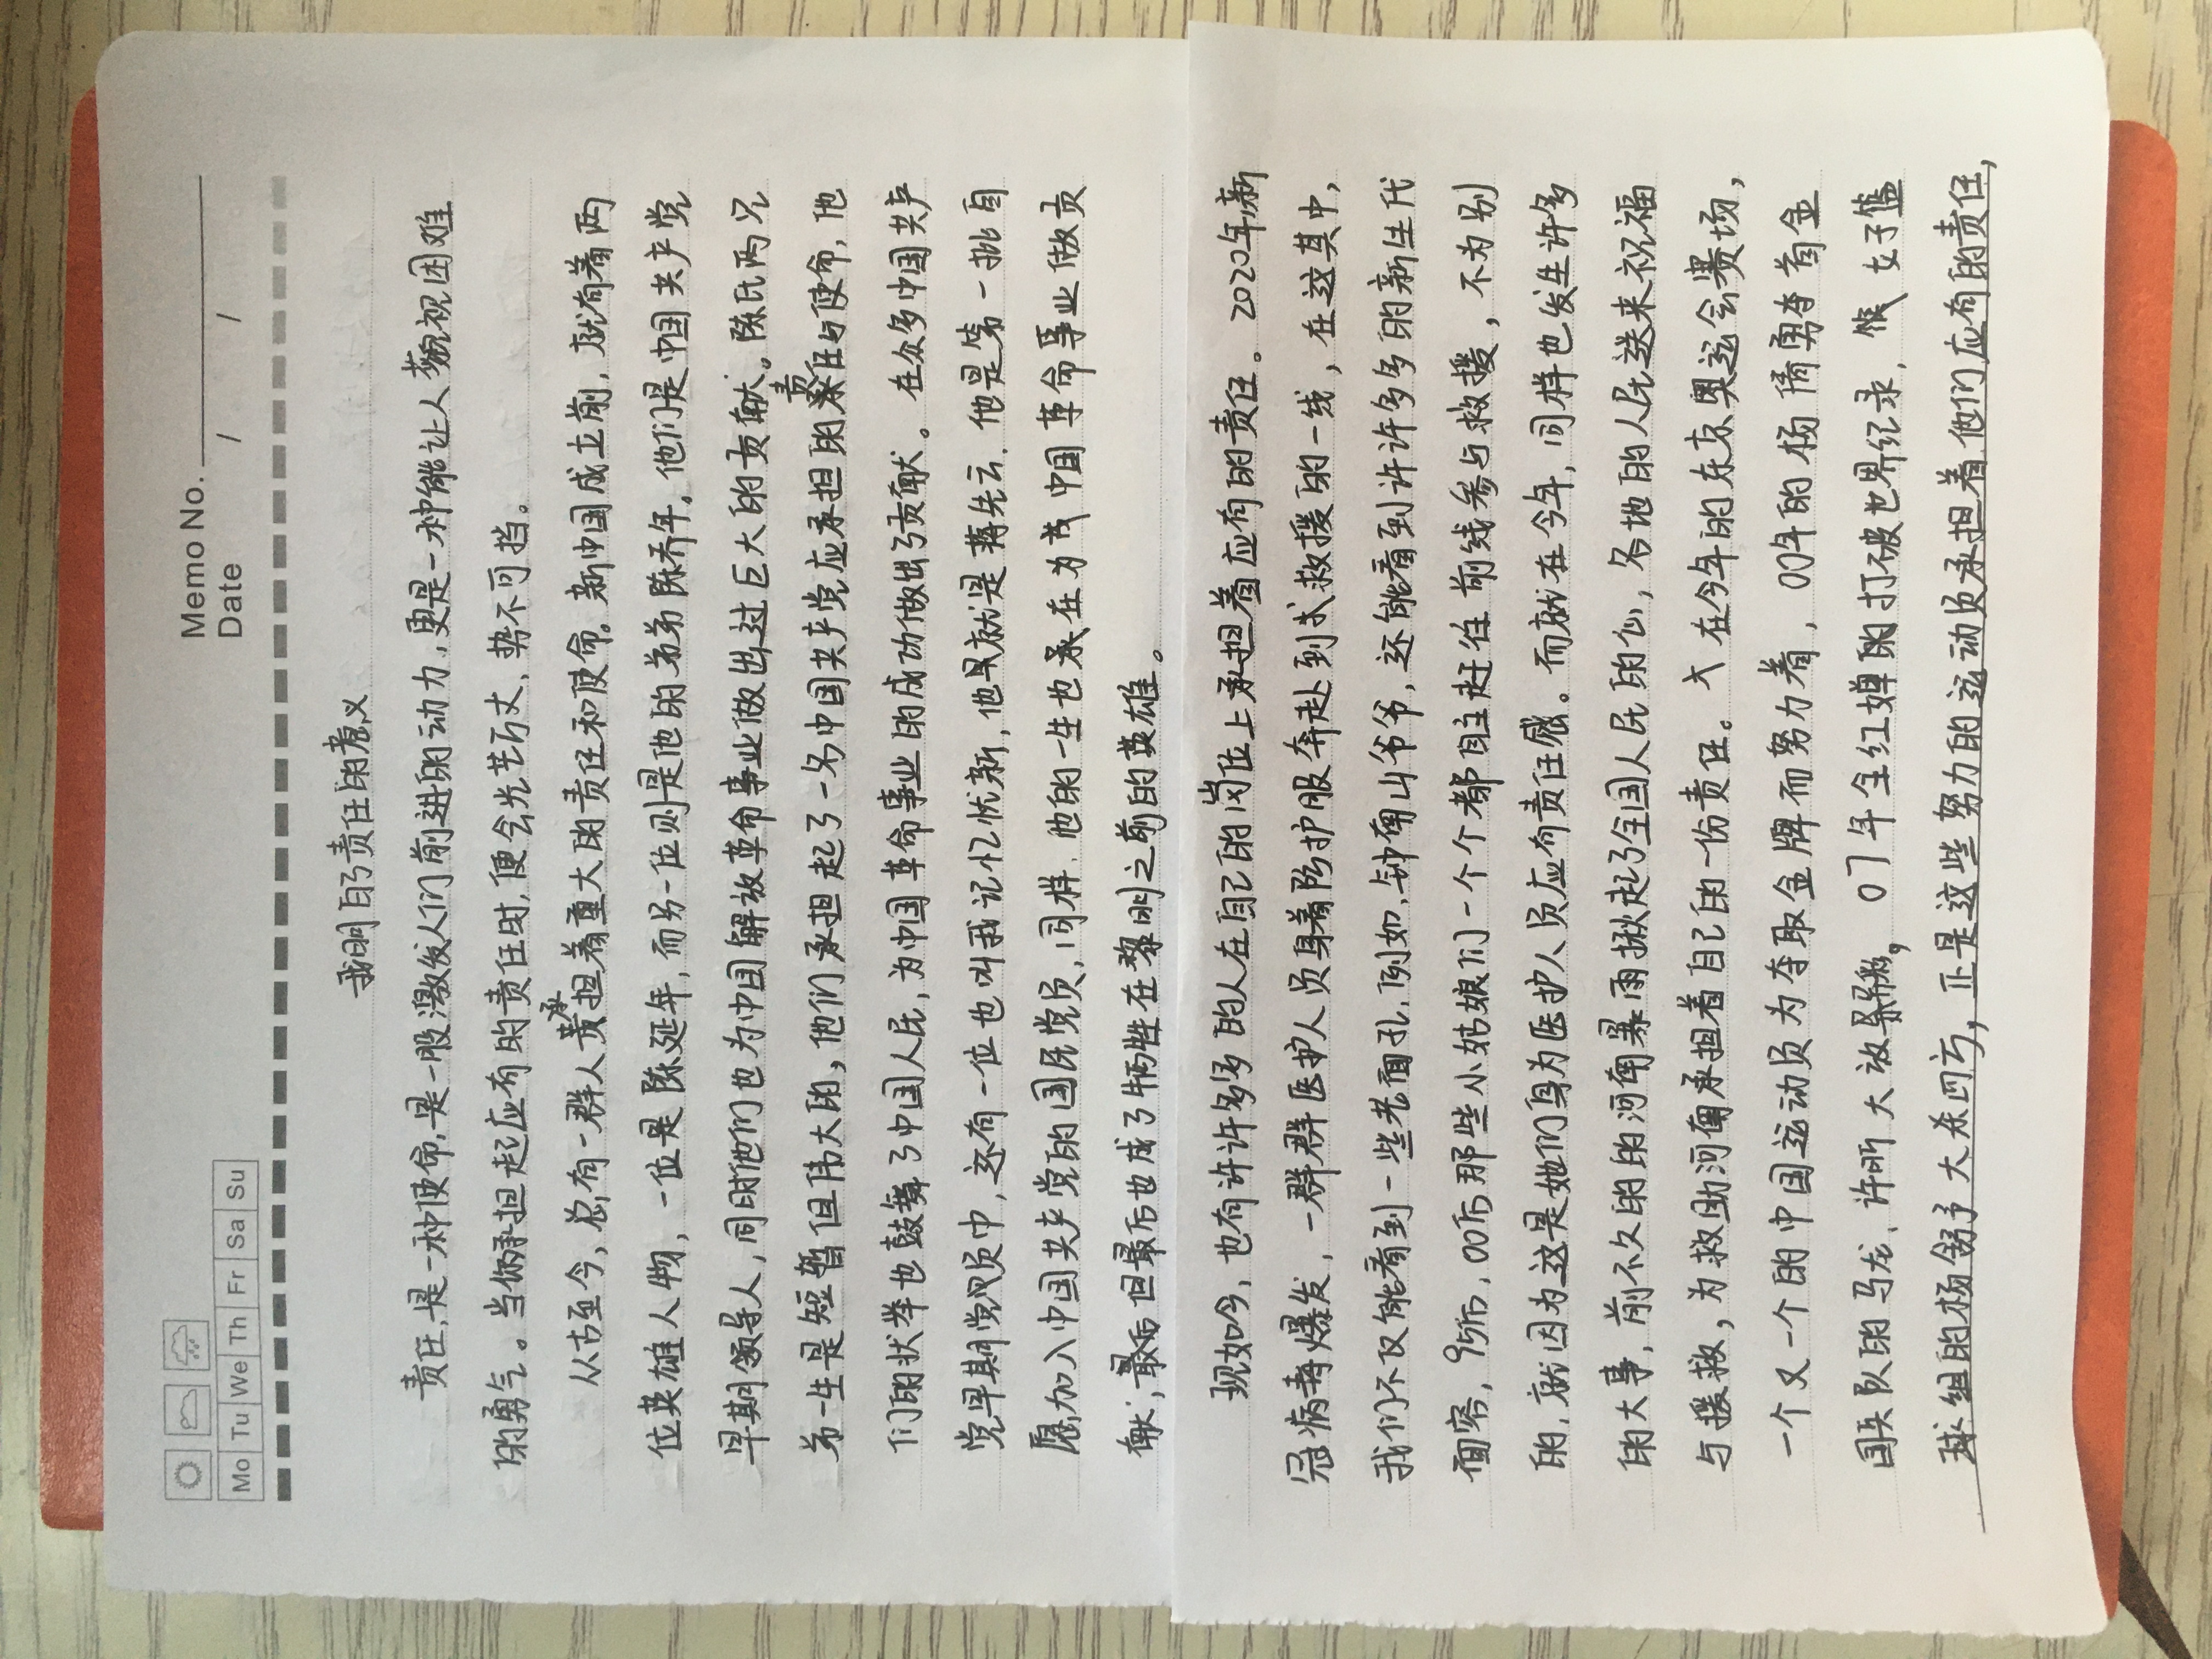 Memo No.
Date / /
Mo Tu We Th Fr Sa Su
我明白了责任的意义
责任,是一种使命,是一股激发人们前进的动力,更是一种能让人藐视困难
的勇气。当你承担起应有的责任时,便会光芒万丈,势不可挡。
从古至今,总有一群人承担着重大的责任和使命。新中国成立前,就有着两
位英雄人物,一位是陈延年,而另一位则是他的弟弟陈乔年,他们是中国共产党
早期领导人,同时他们也为中国解放革命事业做出过巨大的贡献。陈氏两兄
弟一生是短暂但伟大的,他们承担起了一名中国共产党应承担的责任与使命,他
们的状举也鼓舞了中国人民,为中国革命事业的成功做出了贡献。在众多中国共产
党早期党员中,还有一位也叫我记忆忧新,他早就是蒋先云,他是第一批自
愿加入中国共产党的国民党员,同样,他的一生也承在为中国革命事业做贡
献,最后但最后也成了牺牲在黎明之前的英雄。
现如今,也有许许多多的人在自己的岗位上承担着应有的责任。2020年新
冠病毒爆发,一群群医护人员身着防护服奔赴到救援的一线,在这其中,
我们不仅能看到一些老面孔,例如,钟南山爷爷,还能看到许许多多的新生代
面容,95后,00后那些小姑娘们一个个都自主赶往前线参与救援,不为别
的,就因为这是她们身为医护人员应有责任感。而就在今年,同样也发生许多
的大事,前不久的的河南暴雨揪起了全国人民的心,各地的人民送来祝福
与援救,为救助河南承担着自己的一份责任。在今年的东京奥运会赛场,
一个又一个的中国运动员为夺取金牌而努力着,00年的杨倩勇夺首金
国乒队的马龙、许昕大放异彩,07年全红婵的打破世界纪录,俄女子篮
球组的杨舒予大杀四方,正是这些努力的运动员承担着他们应有的责任,